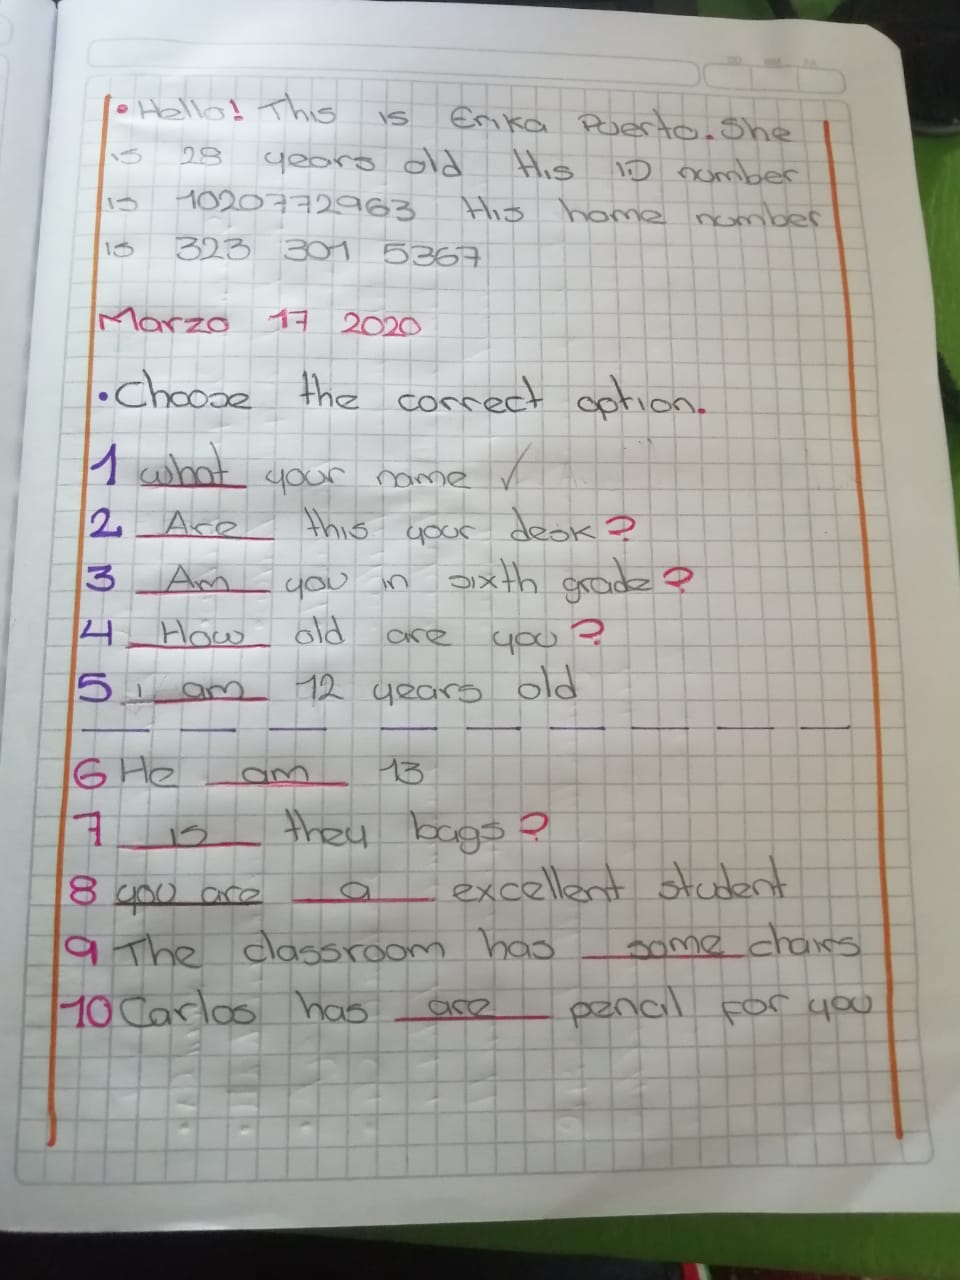 • Hello! This is Erika Puerto. She
is 28 years old His ID number
is 1020772963 His home number
is 323 301 5367
Marzo 17 2020
• Choose the correct option.
1 what your name ✓
2 Are this your desk?
3 Am you in sixth grade?
4 How old are you?
5 i am 12 years old
6 He am 13
7 is they bags?
8 you are a excellent student
9 The classroom has some chairs
10 Carlos has are pencil for you